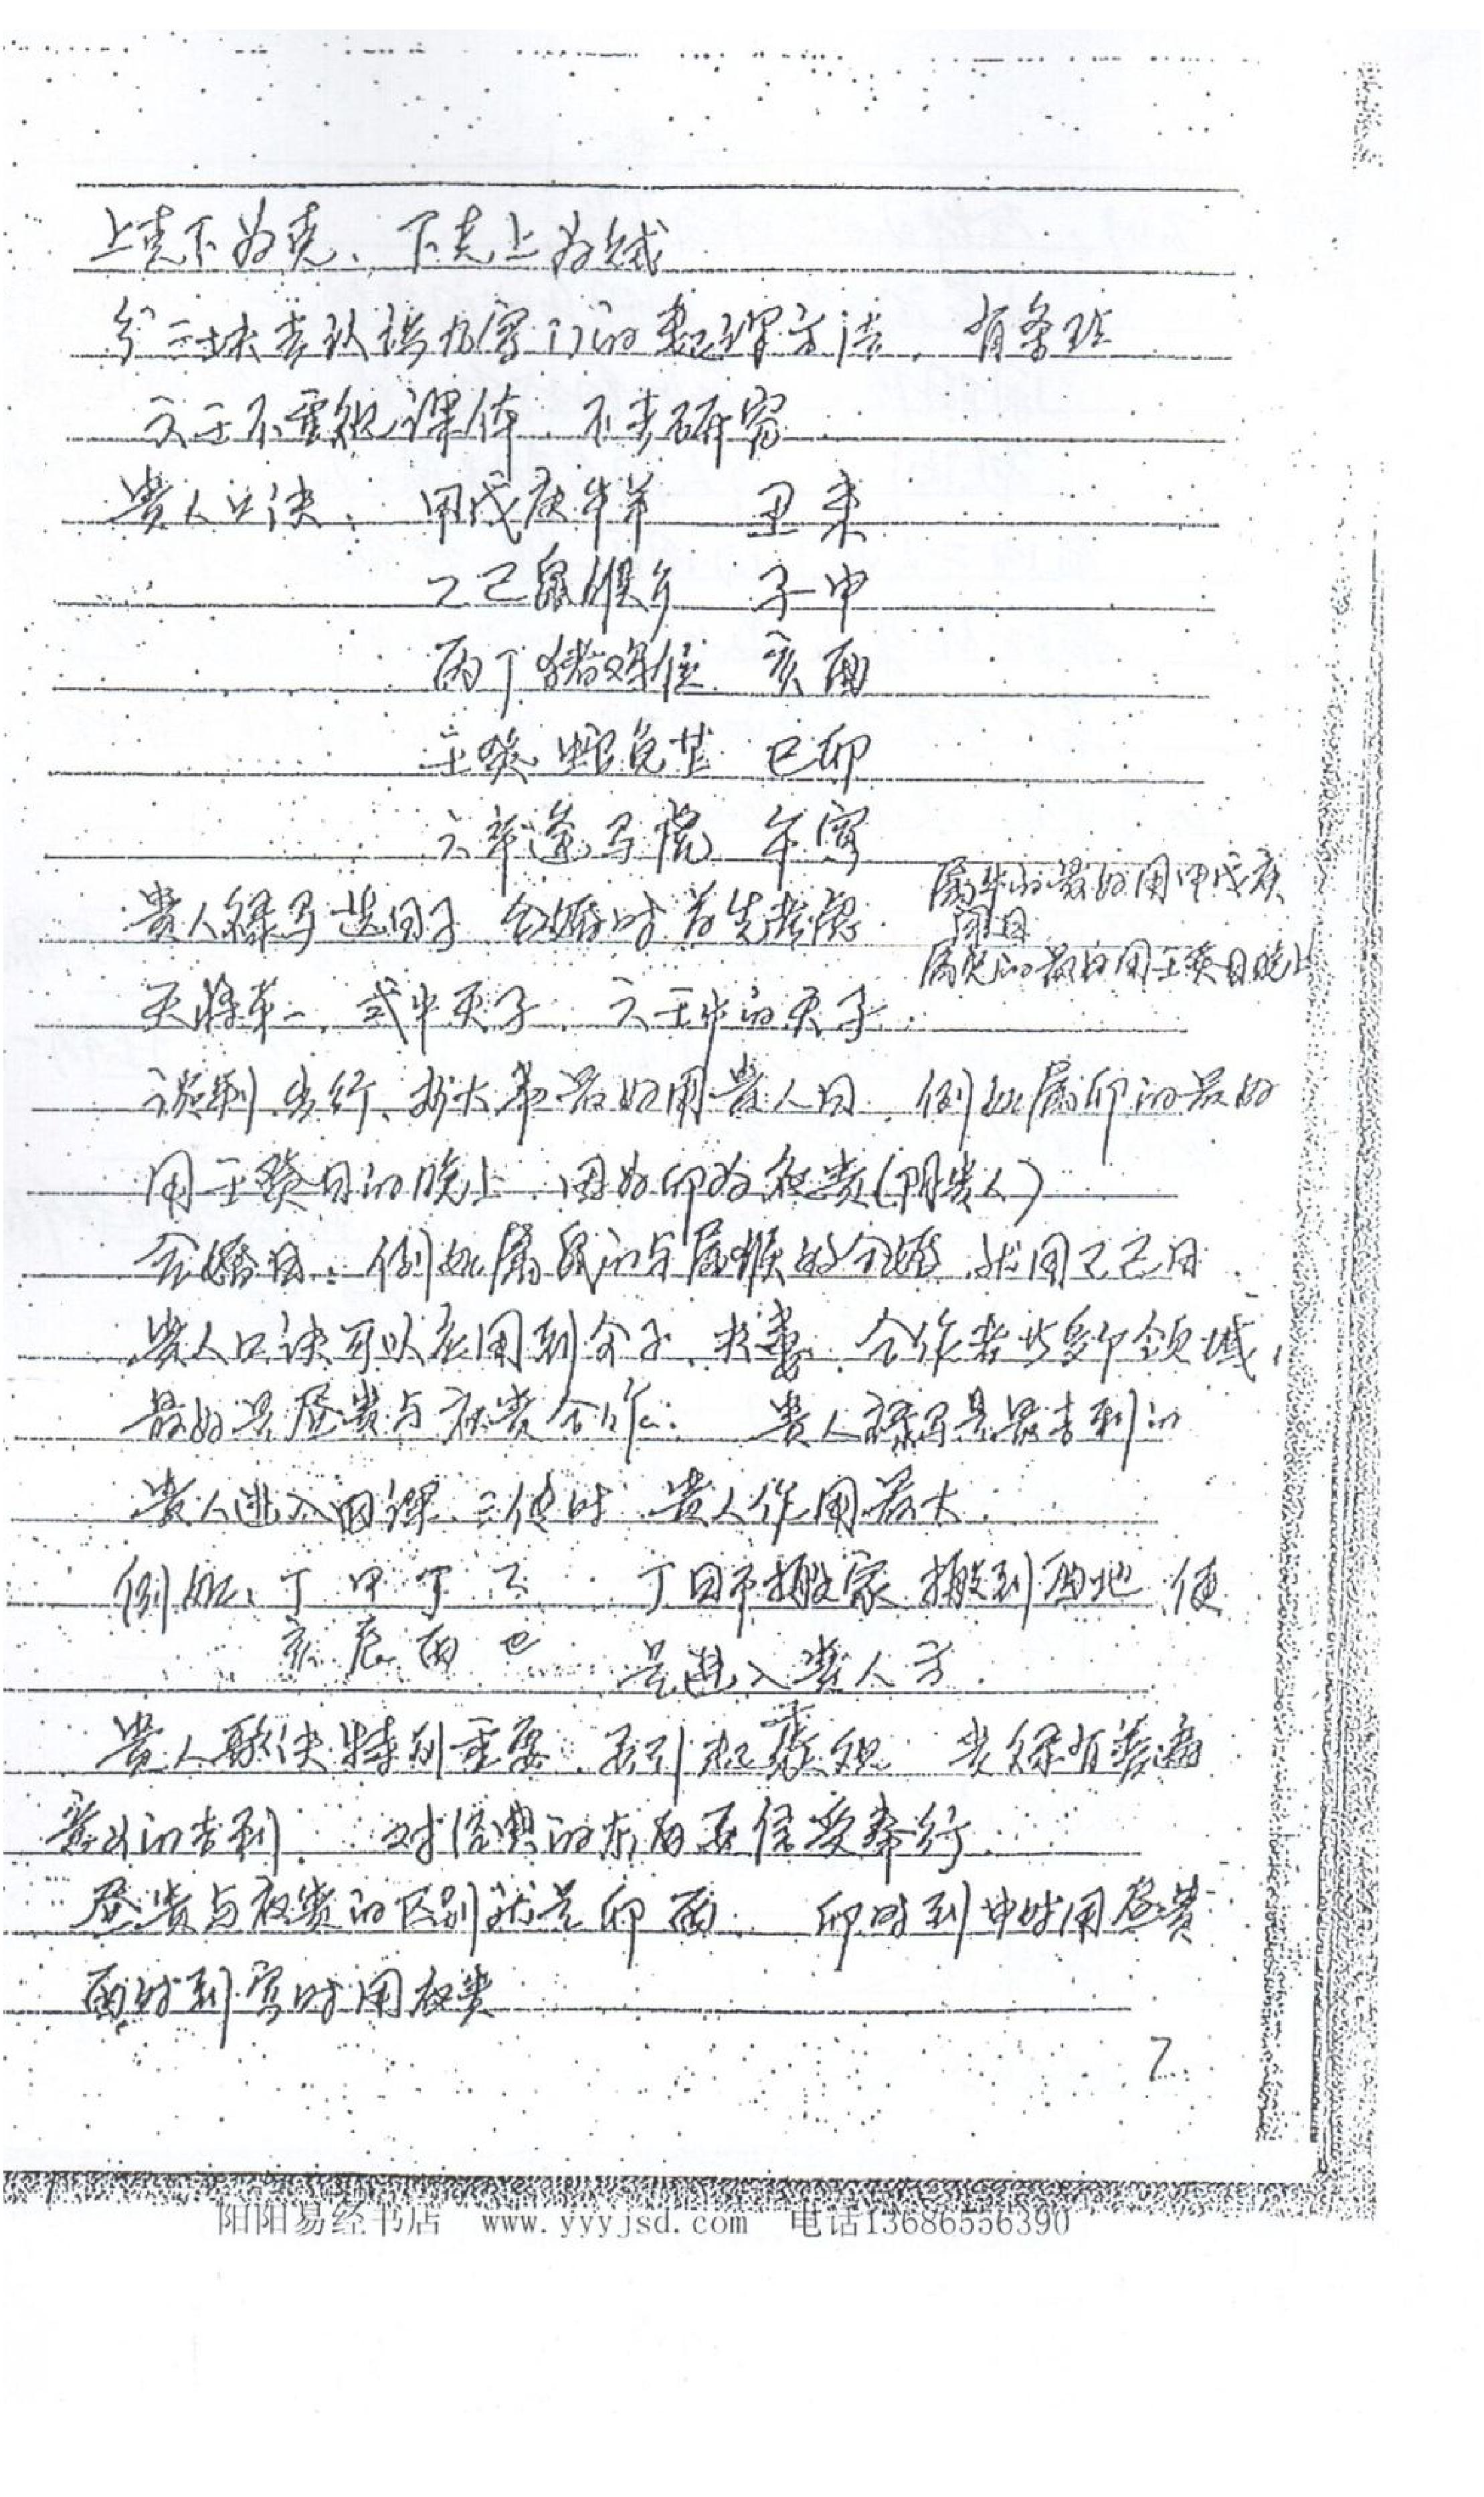 上克下为克、下克上为贼
分三块去认识九宗门的数理方法，有条班
六壬不重视课体，不去研究
贵人口诀：甲戊庚牛羊 丑未
乙己鼠猴乡 子申
丙丁猪鸡位 亥酉
壬癸蛇兔藏 巳卯
六辛逢马虎 午寅
属牛的最好用甲戊庚
贵人禄马选日子 合婚时首先考虑
属兔的最好用壬癸日晚上
天将第一，式中天子，六壬中的天子
谈判、出行、办大事最好用贵人日，例如属卯的最好
用壬癸日的晚上，因为卯为夜贵(阴贵人)
合婚日：例如属鼠的与属猴的合婚，就用乙己日
贵人口诀可以应用到合婚、求妻、合作者等领域，
最好是昼贵与夜贵合作。 贵人禄马是最吉利的
贵人进入四课、三传时，贵人作用最大
例如：丁 甲 丁 乙 丁日市搬家 搬到酉地，便
亥 辰 酉 巳 是进入贵人方
贵人歌诀特别重要，要引起重视
意义的吉利 对经典的东西要信受奉行
昼贵与夜贵的区别就是卯酉 卯时到申时用昼贵
酉时到寅时用夜贵
7
阳阳易经书店 www.yyyjsd.com 电话13686556390